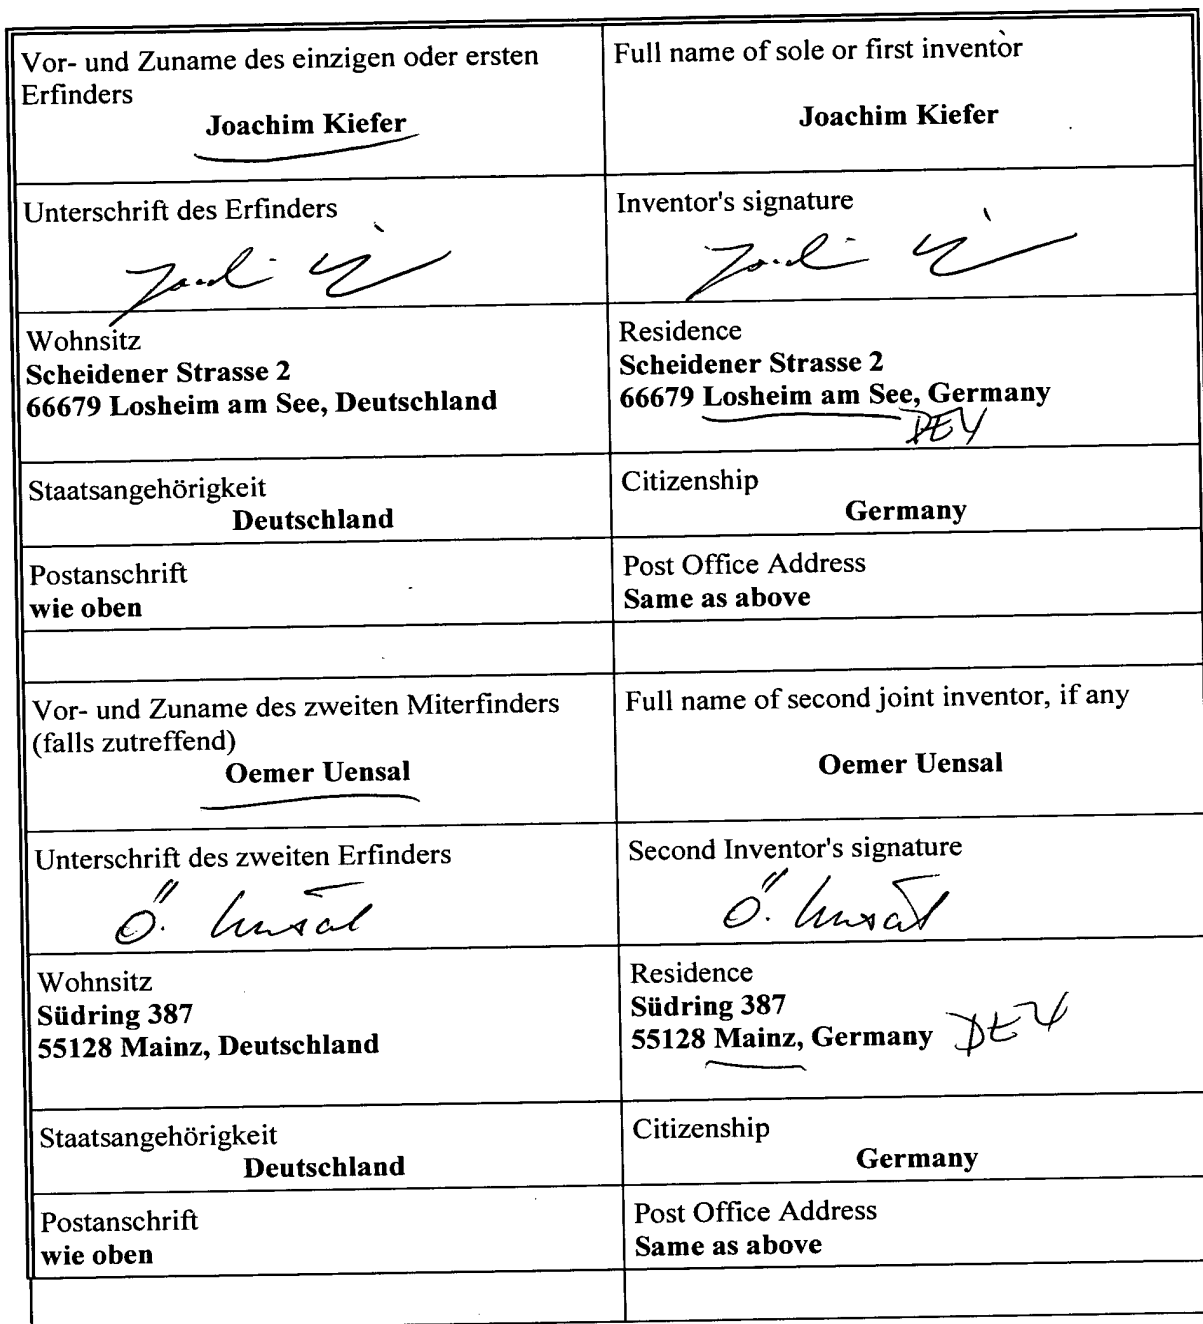 Vor- und Zuname des einzigen oder ersten
Erfinders
Joachim Kiefer
Full name of sole or first inventor
Joachim Kiefer
Unterschrift des Erfinders
Inventor's signature
Wohnsitz
Scheidener Strasse 2
66679 Losheim am See, Deutschland
Residence
Scheidener Strasse 2
66679 Losheim am See, Germany
DEX
Staatsangehörigkeit
Deutschland
Citizenship
Germany
Postanschrift
wie oben
Post Office Address
Same as above
Vor- und Zuname des zweiten Miterfinders
(falls zutreffend)
Oemer Uensal
Full name of second joint inventor, if any
Oemer Uensal
Unterschrift des zweiten Erfinders
Ö. Uensal
Second Inventor's signature
Ö. Uensal
Wohnsitz
Südring 387
55128 Mainz, Deutschland
Residence
Südring 387
55128 Mainz, Germany DEX
Staatsangehörigkeit
Deutschland
Citizenship
Germany
Postanschrift
wie oben
Post Office Address
Same as above